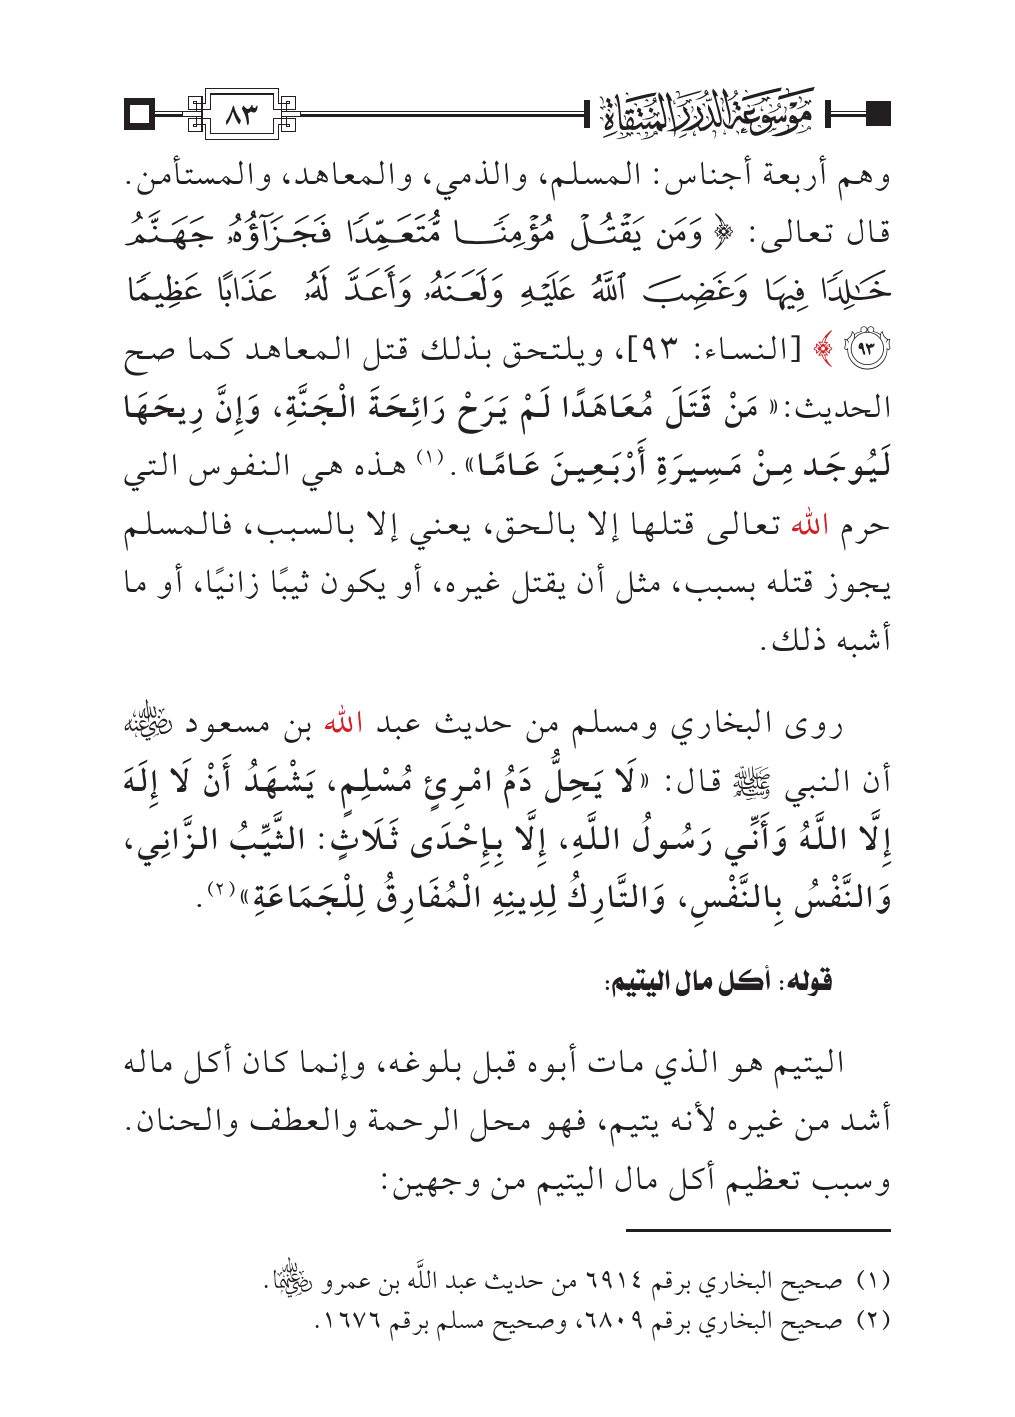 موسوعة الدرر المنتقاة
٨٣
وهم أربعة أجناس: المسلم، والذمي، والمعاهد، والمستأمن.
قال تعالى: ﴿ وَمَن يَقْتُلْ مُؤْمِنًا مُّتَعَمِّدًا فَجَزَآؤُهُۥ جَهَنَّمُ
خَٰلِدًا فِيهَا وَغَضِبَ ٱللَّهُ عَلَيْهِ وَلَعَنَهُۥ وَأَعَدَّ لَهُۥ عَذَابًا عَظِيمًا
٩٣ ﴾ [النساء: ٩٣]، ويلتحق بذلك قتل المعاهد كما صح
الحديث: «مَنْ قَتَلَ مُعَاهَدًا لَمْ يَرَحْ رَائِحَةَ الْجَنَّةِ، وَإِنَّ رِيحَهَا
لَيُوجَد مِنْ مَسِيرَةِ أَرْبَعِينَ عَامًا».(١) هذه هي النفوس التي
حرم الله تعالى قتلها إلا بالحق، يعني إلا بالسبب، فالمسلم
يجوز قتله بسبب، مثل أن يقتل غيره، أو يكون ثيبًا زانيًا، أو ما
أشبه ذلك.
روى البخاري ومسلم من حديث عبد الله بن مسعود رضي الله عنه
أن النبي ﷺ قال: «لَا يَحِلُّ دَمُ امْرِئٍ مُسْلِمٍ، يَشْهَدُ أَنْ لَا إِلَهَ
إِلَّا اللَّهُ وَأَنِّي رَسُولُ اللَّهِ، إِلَّا بِإِحْدَى ثَلَاثٍ: الثَّيِّبُ الزَّانِي،
وَالنَّفْسُ بِالنَّفْسِ، وَالتَّارِكُ لِدِينِهِ الْمُفَارِقُ لِلْجَمَاعَةِ»(٢).
قوله: أكل مال اليتيم:
اليتيم هو الذي مات أبوه قبل بلوغه، وإنما كان أكل ماله
أشد من غيره لأنه يتيم، فهو محل الرحمة والعطف والحنان.
وسبب تعظيم أكل مال اليتيم من وجهين:
(١) صحيح البخاري برقم ٦٩١٤ من حديث عبد اللَّه بن عمرو رضي الله عنهما.
(٢) صحيح البخاري برقم ٦٨٠٩، وصحيح مسلم برقم ١٦٧٦.